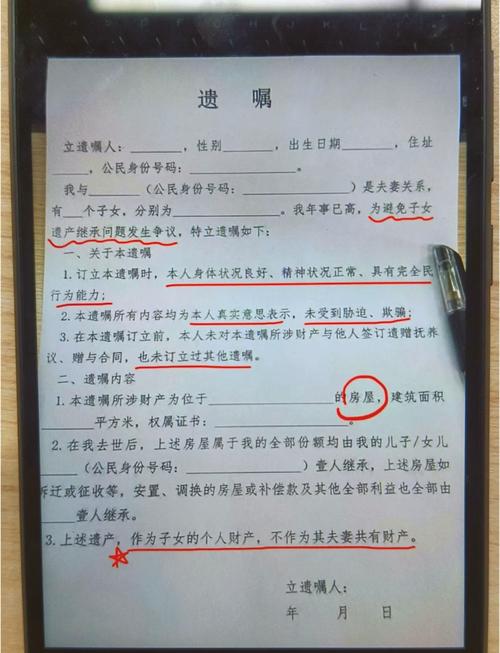 遗 嘱
立遗嘱人：________，性别________，出生日期________，住址
______，公民身份号码：________________。
我与________（公民身份号码：________________）是夫妻关系，
有___个子女，分别为________________。我年事已高，为避免子女
遗产继承问题发生争议，特立遗嘱如下：
一、关于本遗嘱
1.订立本遗嘱时，本人身体状况良好、精神状况正常、具有完全民
行为能力；
2.本遗嘱所有内容均为本人真实意思表示，未受到胁迫、欺骗；
3.在本遗嘱订立前，本人未对本遗嘱所涉财产与他人签订遗赠抚养
议、赠与合同，也未订立过其他遗嘱。
二、遗嘱内容
1.本遗嘱所涉财产为位于____________________的房屋，建筑面积
________平方米，权属证书：____________________。
2.在我去世后，上述房屋属于我的全部份额均由我的儿子/女儿
______（公民身份号码：________________）壹人继承，上述房屋如
拆迁或征收等，安置、调换的房屋或补偿款及其他全部利益也全部由
______壹人继承。
3.上述遗产，作为子女的个人财产，不作为其夫妻共有财产。
立遗嘱人：
年 月 日